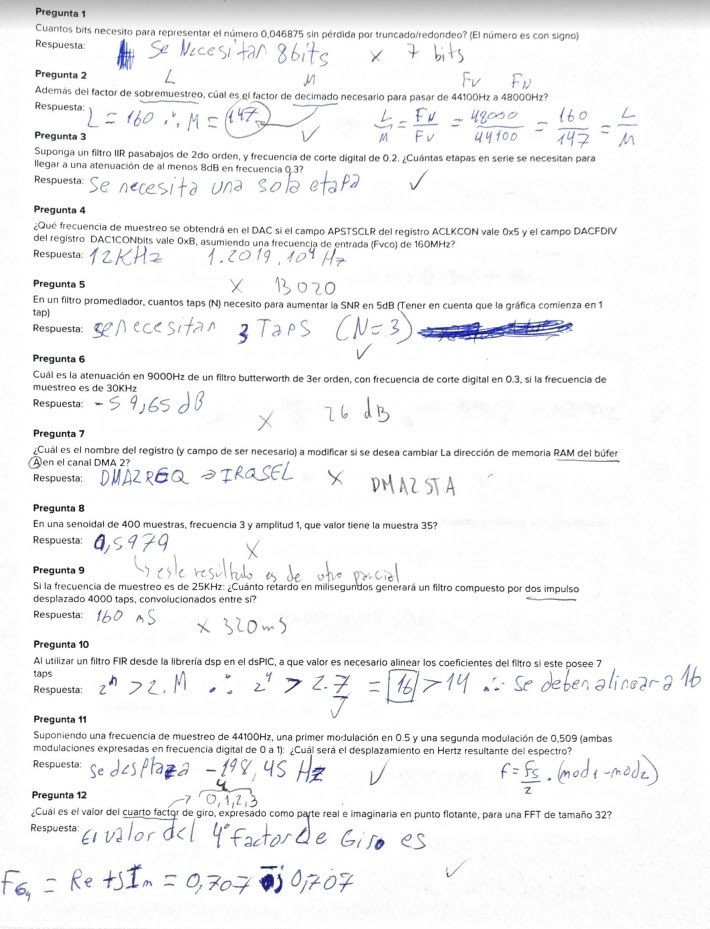 Pregunta 1
Cuantos bits necesito para representar el número 0,046875 sin pérdida por truncado/redondeo? (El número es con signo)
Respuesta: Se Necesitan 8bits x 7 bits
Pregunta 2
L M Fv FN
Además del factor de sobremuestreo, cúal es el factor de decimado necesario para pasar de 44100Hz a 48000Hz?
Respuesta: L = 160 ∴ M = 147 ✓ L/M = FN/Fv = 48000/44100 = 160/147 = L/M
Pregunta 3
Suponga un filtro IIR pasabajos de 2do orden, y frecuencia de corte digital de 0.2. ¿Cuántas etapas en serie se necesitan para
llegar a una atenuación de al menos 8dB en frecuencia 0.3?
Respuesta: Se necesita una sola etapa ✓
Pregunta 4
¿Qué frecuencia de muestreo se obtendrá en el DAC si el campo APSTSCLR del registro ACLKCON vale 0x5 y el campo DACFDIV
del registro DAC1CONbits vale 0xB, asumiendo una frecuencia de entrada (Fvco) de 160MHz?
Respuesta: 12KHz 1.2019.10⁴ Hz
x 13020
Pregunta 5
En un filtro promediador, cuantos taps (N) necesito para aumentar la SNR en 5dB (Tener en cuenta que la gráfica comienza en 1
tap)
Respuesta: se necesitan 3 Taps (N=3)
✓
Pregunta 6
Cuál es la atenuación en 9000Hz de un filtro butterworth de 3er orden, con frecuencia de corte digital en 0.3, si la frecuencia de
muestreo es de 30KHz
Respuesta: -59,65 dB x 26 dB
Pregunta 7
¿Cuál es el nombre del registro (y campo de ser necesario) a modificar si se desea cambiar La dirección de memoria RAM del búfer
A en el canal DMA 2?
Respuesta: DMA2REQ → IRQSEL x DMA2STA
Pregunta 8
En una senoidal de 400 muestras, frecuencia 3 y amplitud 1, que valor tiene la muestra 35?
Respuesta: 0,5979 x
↳ este resultado es de otro parcial
Pregunta 9
Si la frecuencia de muestreo es de 25KHz: ¿Cuánto retardo en milisegundos generará un filtro compuesto por dos impulso
desplazado 4000 taps, convolucionados entre sí?
Respuesta: 160 mS x 320mS
Pregunta 10
Al utilizar un filtro FIR desde la librería dsp en el dsPIC, a que valor es necesario alinear los coeficientes del filtro si este posee 7
taps
Respuesta: 2ⁿ > 2.M ∴ 2⁴ > 2.7 = 16 > 14 ∴ se deben alinear a 16
✓
Pregunta 11
Suponiendo una frecuencia de muestreo de 44100Hz, una primer modulación en 0.5 y una segunda modulación de 0,509 (ambas
modulaciones expresadas en frecuencia digital de 0 a 1): ¿Cuál será el desplazamiento en Hertz resultante del espectro?
Respuesta: se desplaza -198,45 Hz ✓ f = fs/2 . (mod1 - mod2)
4
Pregunta 12 → 0,1,2,3
¿Cuál es el valor del cuarto factor de giro, expresado como parte real e imaginaria en punto flotante, para una FFT de tamaño 32?
Respuesta: El valor del 4° Factor De Giro es
FG4 = Re + j Im = 0,707 - j 0,707 ✓